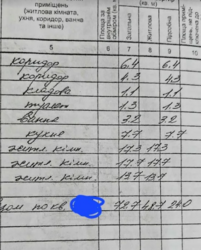 приміщень
(житлова кімната,
кухня, коридор, ванна
та інше)
Площа за внутрішнім обміром кв. м
Загальна
Житлова
Підсобна
5 6 7 8 9 10
коридор 6.4 6.4
коридор 4.3 4.3
кладова 1.1 1.1
туалет 1.3 1.3
ванна 3.2 3.2
кухня 7.7 7.7
житл. кімн. 17.3 17.3
житл. кімн. 17.7 17.7
житл. кімн. 13.7 13.7
по кв. 72.7 48.7 24.0